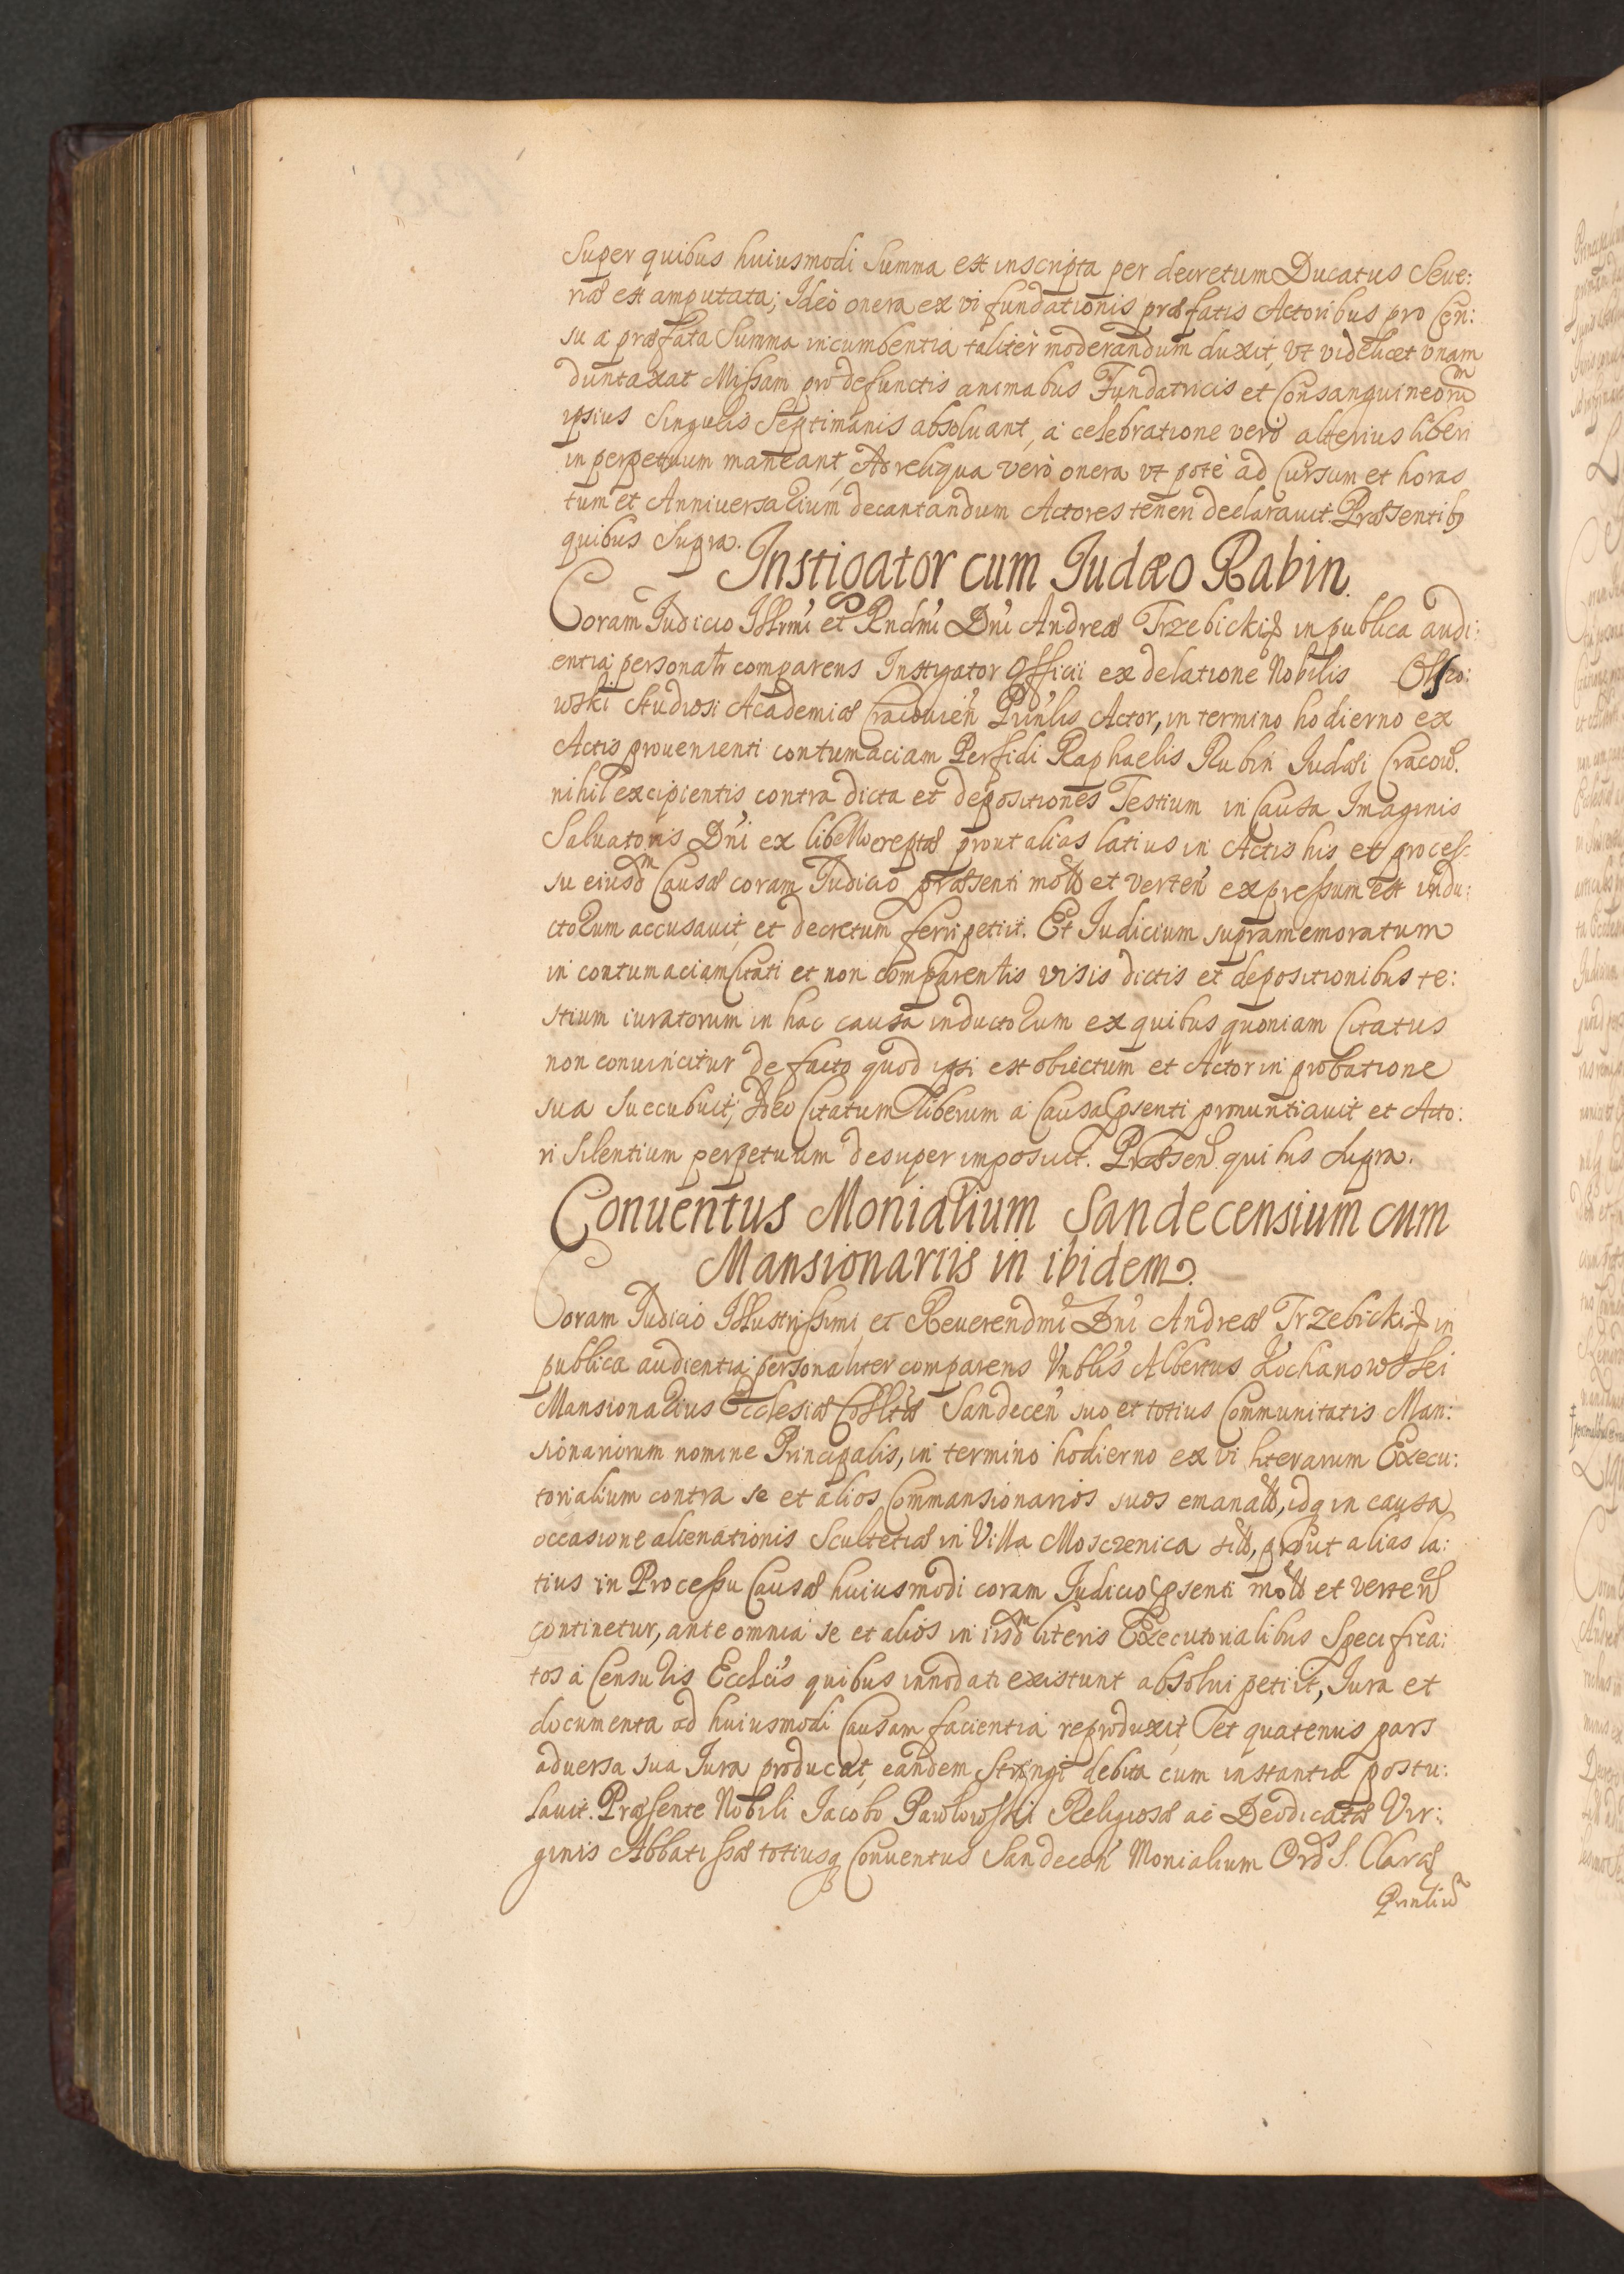 Super quibus huiusmodi Summa est inscripta per decretum Ducatus Seue:
riæ est amputata; Ideò onera ex vi fundationis præfatis Actoribus pro Cen:
su à præfata Summa incumbentia taliter moderandum duxit, vt videlicet vnam
duntaxat Missam pro defunctis animabus Fundatricis et Consanguineorum
ipsius Singulis Septimanis absoluant, à celebratione verò alterius liberi
in perpetuum maneant, Ad reliqua verò onera vt potè ad Cursum et horas
tum et Anniuersarium decantandum Actores teneri declarauit. Præsentibus
quibus Supra.
Instigator cum Iudæo Rabin.
Coram Iudicio Illrmi et Rndmi Dni Andreæ Trzebicki in publica audi:
entia personalr comparens Instigator Officii ex delatione Nobilis Olszo:
wski Studiosi Academiæ Cracouien Prinlis Actor, in termino hodierno ex
Actis prouenienti contumaciam Perfidi Raphaelis Rubin Iudæi Cracou.
nihil excipientis contra dicta et depositiones Testium in Causa Imaginis
Saluatoris Dni ex libello ereptæ prout alias latius in Actis his et proces:
su eiusdm Causæ coram Iudicio præsenti mot et verten expressum est indu:
ctorum accusauit, et decretum ferri petiit. Et Iudicium supramemoratum
in contumaciam Citati et non comparentis visis dictis et depositionibus te:
stium iuratorum in hac causa inductorum ex quibus quoniam Citatus
non conuincitur de facto quod ipsi est obiectum et Actor in probatione
sua succubuit; Ideo Citatum liberum à Causa psenti pronuntiauit et Acto:
ri Silentium perpetuum desuper imposuit. Præsen quibus Supra.
Conuentus Monialium Sandecensium cum
Mansionariis in ibidem.
Coram Iudicio Illustrissimi et Reuerendmi Dni Andreæ Trzebicki in
publica audientia personaliter comparens Vnblis Albertus Kochanowski
Mansionarius Ecclesiæ Colltæ Sandecen suo et totius Communitatis Man:
sionariorum nomine Principalis, in termino hodierno ex vi literarum Execu:
torialium contra se et alios Commansionarios suos emanat, idq in causa
occasione alienationis Scultetiæ in Villa Mosczenica sit, prout alias la:
tius in Processu Causæ huiusmodi coram Iudicio psenti mot et verten
continetur, ante omnia se et alios in iisdm literis Executorialibus Specifica:
tos à Censuris Ecclcis quibus innodati existunt absolui petiit, Iura et
documenta ad huiusmodi Causam facientia reproduxit, et quatenus pars
aduersa sua Iura producat, eandem Stringi debita cum instantia postu:
lauit. Præsente Nobili Iacobo Pawlowski Religiosæ ac Deodicatæ Vir:
ginis Abbatissæ totiusq Conuentus Sandecen Monialium Ord S. Claræ
Prinliu